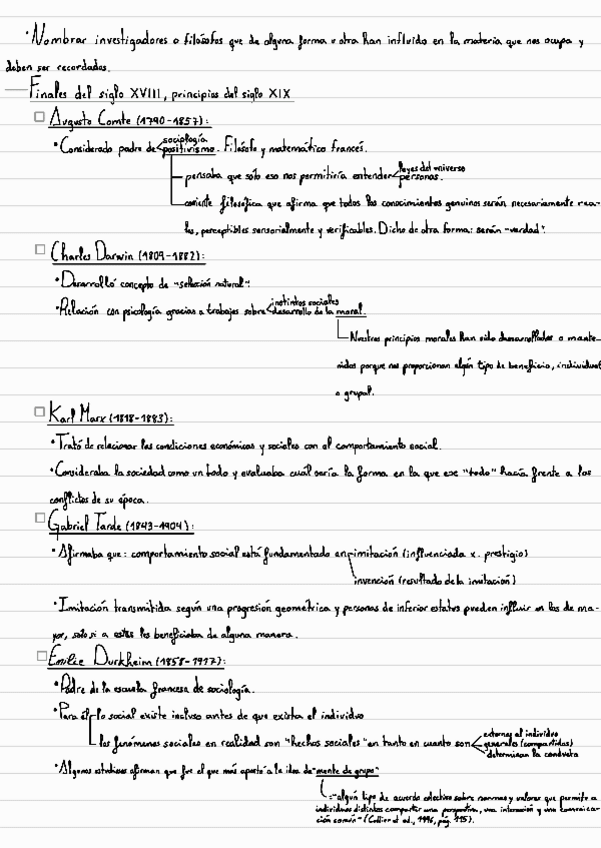 ·Nombrar investigadores o filósofos que de alguna forma u otra han influido en la materia que nos ocupa y
deben ser recordados.
Finales del siglo XVIII, principios del siglo XIX
Augusto Comte (1790-1857):
·Considerado padre de sociología positivismo. Filósofo y matemático francés.
pensaba que sólo eso nos permitiría entender leyes del universo personas.
corriente filosófica que afirma que todos los conocimientos genuinos serán necesariamente rea-
les, perceptibles sensorialmente y verificables. Dicho de otra forma: serán "verdad".
Charles Darwin (1809-1882):
·Desarrolló concepto de "selección natural".
·Relación con psicología gracias a trabajos sobre instintos sociales desarrollo de la moral.
Nuestros principios morales han sido desarrollados o mante-
nidos porque nos proporcionan algún tipo de beneficio, individual
o grupal.
Karl Marx (1818-1883):
·Trató de relacionar las condiciones económicas y sociales con el comportamiento social.
·Consideraba la sociedad como un todo y evaluaba cuál sería la forma en la que ese "todo" hacía frente a los
conflictos de su época.
Gabriel Tarde (1843-1904):
·Afirmaba que: comportamiento social está fundamentado en imitación (influenciada x. prestigio)
invención (resultado de la imitación)
·Imitación transmitida según una progresión geométrica y personas de inferior estatus pueden influir en los de ma-
yor, solo si a estas les beneficiaba de alguna manera.
Emilie Durkheim (1858-1917):
·Padre de la escuela francesa de sociología.
·Para él lo social existe incluso antes de que exista el individuo
los fenómenos sociales en realidad son "hechos sociales" en tanto en cuanto son externos al individuo
generales (compartidos)
determinan la conducta
·Algunos estudiosos afirman que fue el que más aportó a la idea de "mente de grupo"
"algún tipo de acuerdo colectivo sobre normas y valores que permite a
individuos distintos compartir una perspectiva, una interacción y una comunica-
ción común" (Collier et al., 1996, pág. 115).